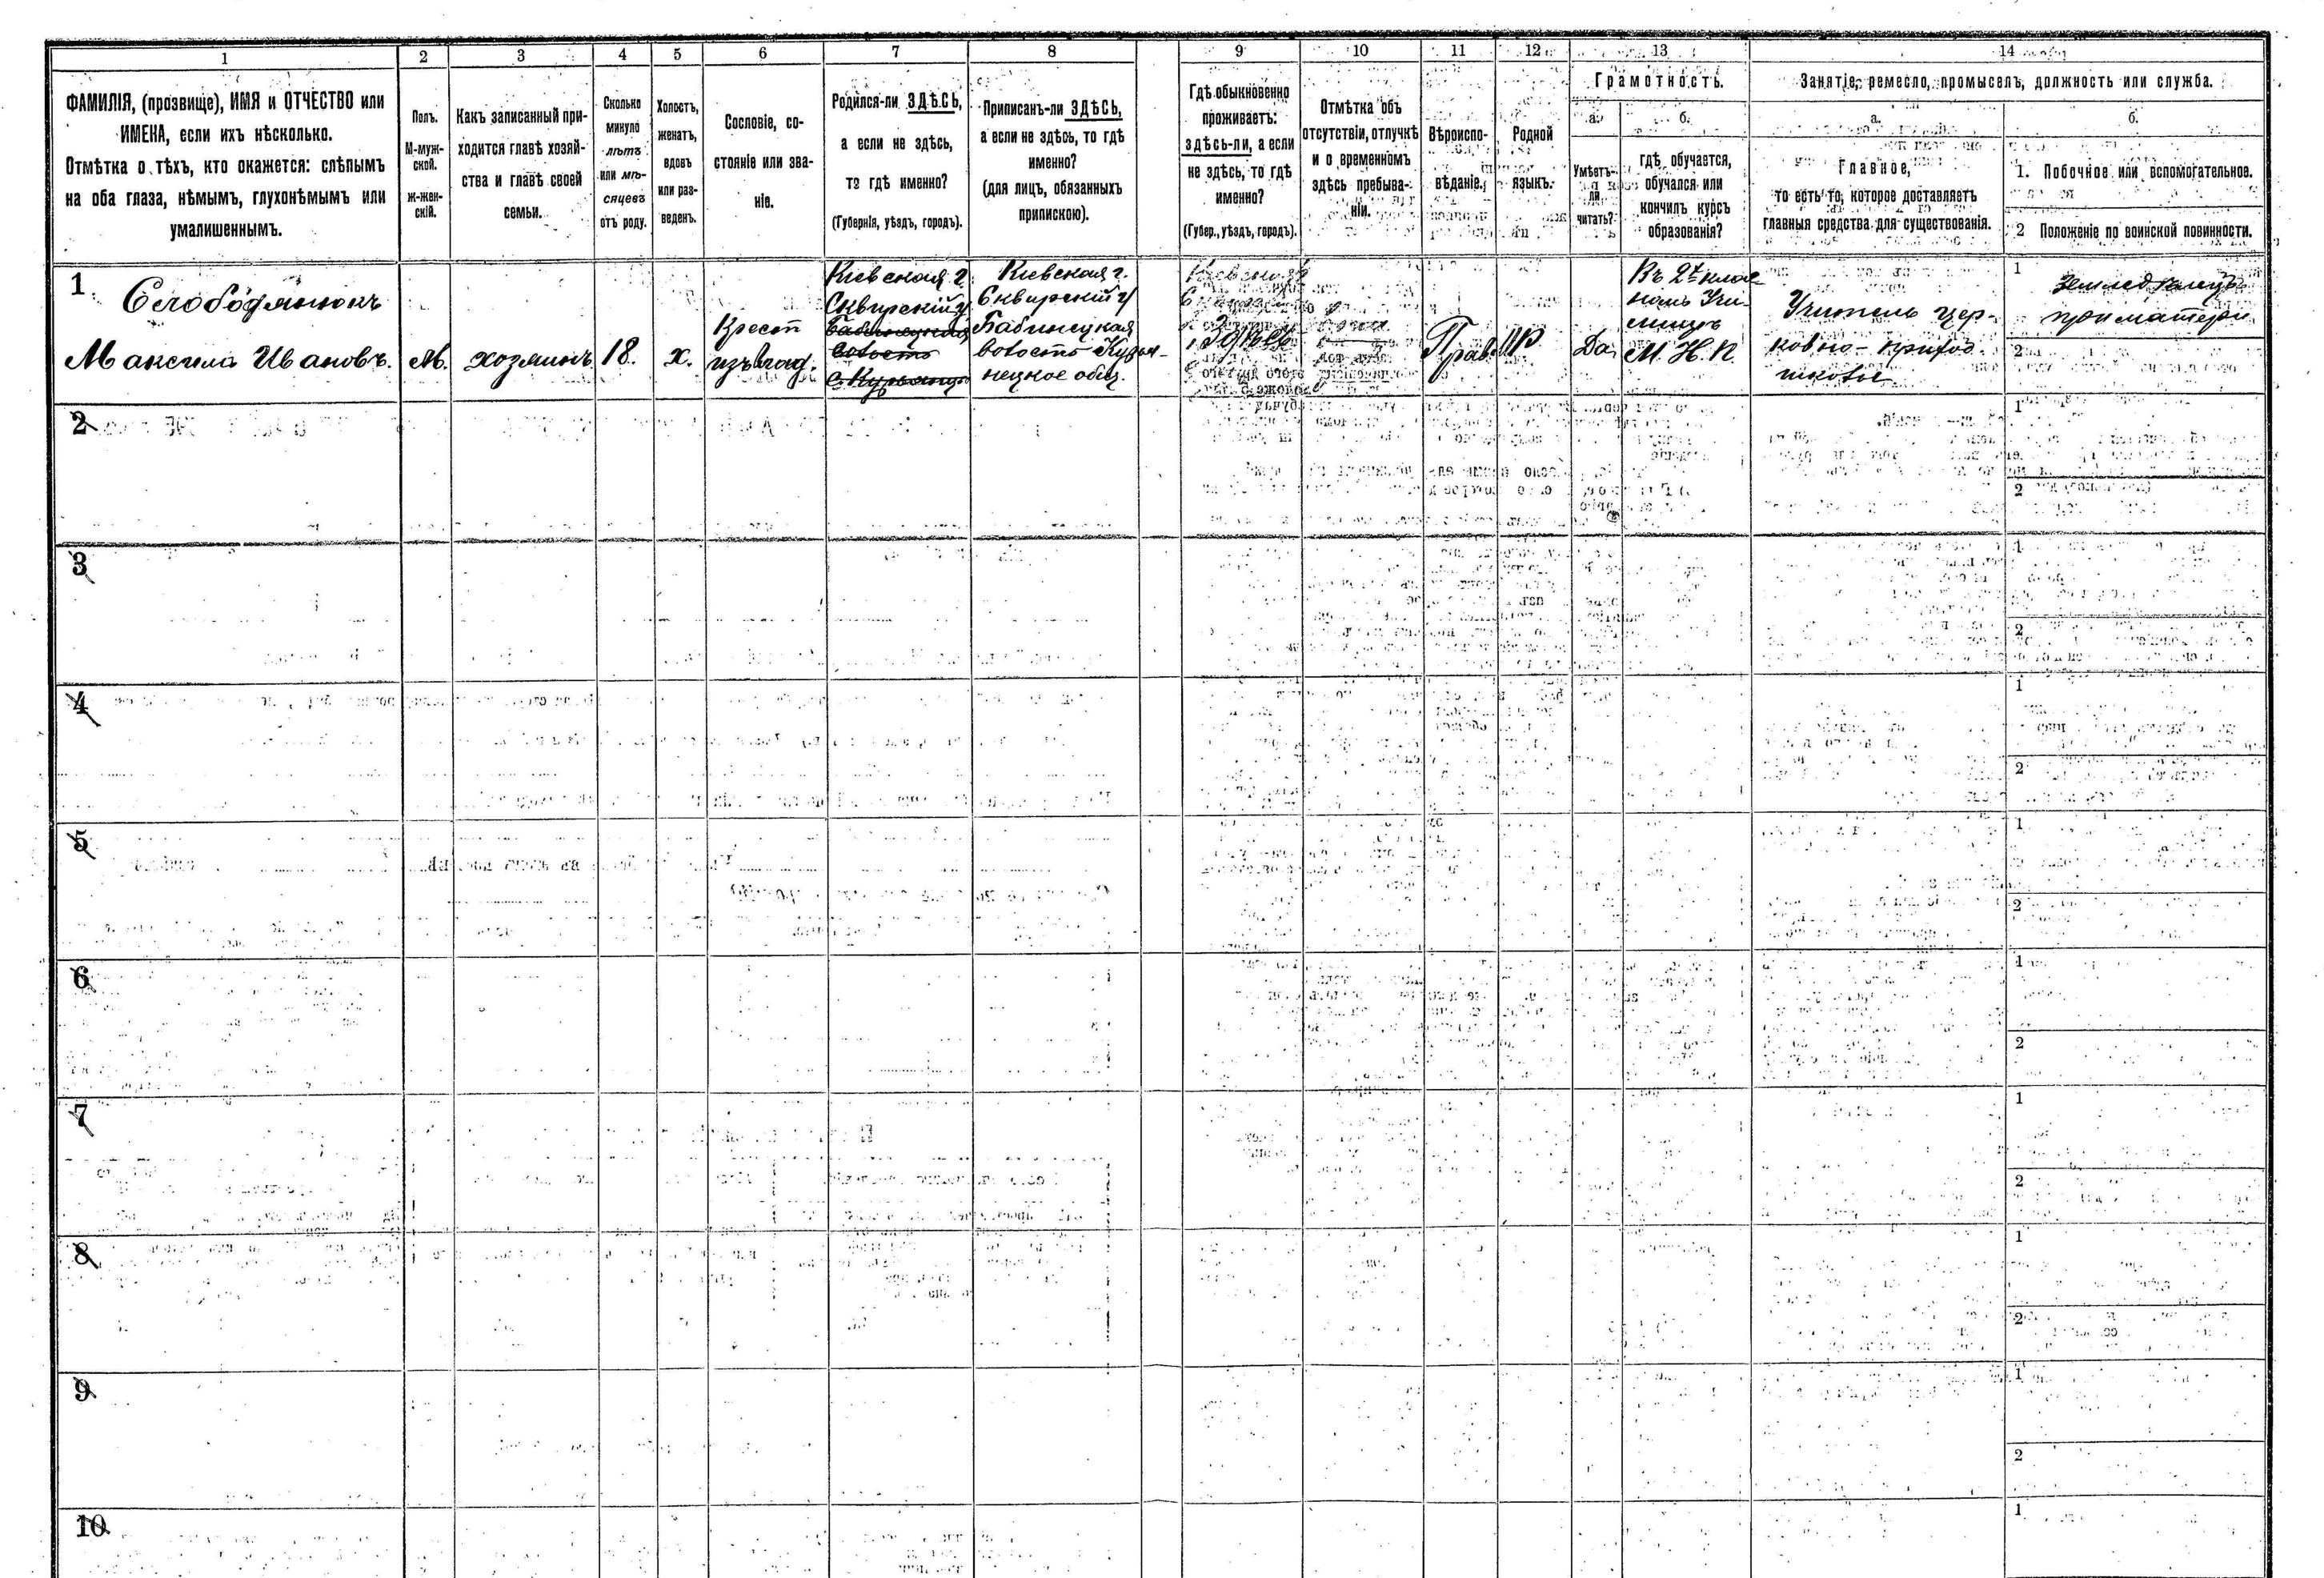 1 2 3 4 5 6 7 8 9 10 11 12 13 14
ФАМИЛІЯ, (прозвище), ИМЯ и ОТЧЕСТВО или
ИМЕНА, если ихъ нѣсколько.
Отмѣтка о тѣхъ, кто окажется: слѣпымъ
на оба глаза, нѣмымъ, глухонѣмымъ или
умалишеннымъ.
Полъ.
М-муж-
ской.
Ж-жен-
скій.
Какъ записанный при-
ходится главѣ хозяй-
ства и главѣ своей
семьи.
Сколько
минуло
лѣтъ
или мѣ-
сяцевъ
отъ роду.
Холостъ,
женатъ,
вдовъ
или раз-
веденъ.
Сословіе, со-
стояніе или зва-
ніе.
Родился-ли ЗДѢСЬ,
а если не здѣсь,
то гдѣ именно?
(Губернія, уѣздъ, городъ).
Приписанъ-ли ЗДѢСЬ,
а если не здѣсь, то гдѣ
именно?
(для лицъ, обязанныхъ
припискою).
Гдѣ обыкновенно
проживаетъ:
здѣсь-ли, а если
не здѣсь, то гдѣ
именно?
(Губер., уѣздъ, городъ).
Отмѣтка объ
отсутствіи, отлучкѣ
и о временномъ
здѣсь пребыва-
ніи.
Вѣроиспо-
вѣданіе.
Родной
языкъ.
Грамотность.
а.
Умѣетъ-
ли
читать?
б.
гдѣ обучается,
обучался или
кончилъ курсъ
образованія?
Занятіе, ремесло, промыселъ, должность или служба.
а.
Главное,
то есть то, которое доставляетъ
главныя средства для существованія.
б.
1. Побочное или вспомогательное.
2 Положеніе по воинской повинности.
1
Слободянюкъ
Максимъ Ивановъ.
М.
хозяинъ
18.
х.
Крест
изъ влад.
Кіевская г.
Сквирскій у
Бабинецкая
волость
Кіевская г.
Сквирскій у
Бабинецкая
волость
нецкое общ.
Здѣсь
Прав.
Да
Въ 2х клас
номъ Учи
лищѣ
М. Н. П.
Учитель цер-
ковно-приход.
школы
1
Земледѣлецъ
при матери
2
2
1
2
3
1
2
4
1
2
5
1
2
6
1
2
7
1
2
8
1
2
9
1
2
10
1